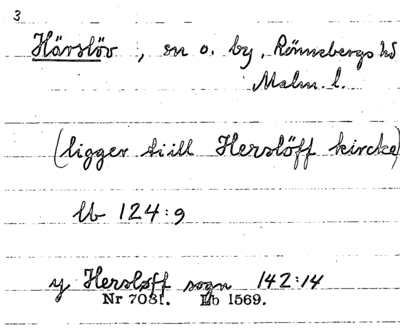 3
Härslöv, sn o. by, Rönnebergs hd
Malm. l.
(ligger tiill Herslöff kircke)
Lb 124:9
y Hersløff sogn 142:14
Nr 7031. Lb 1569.